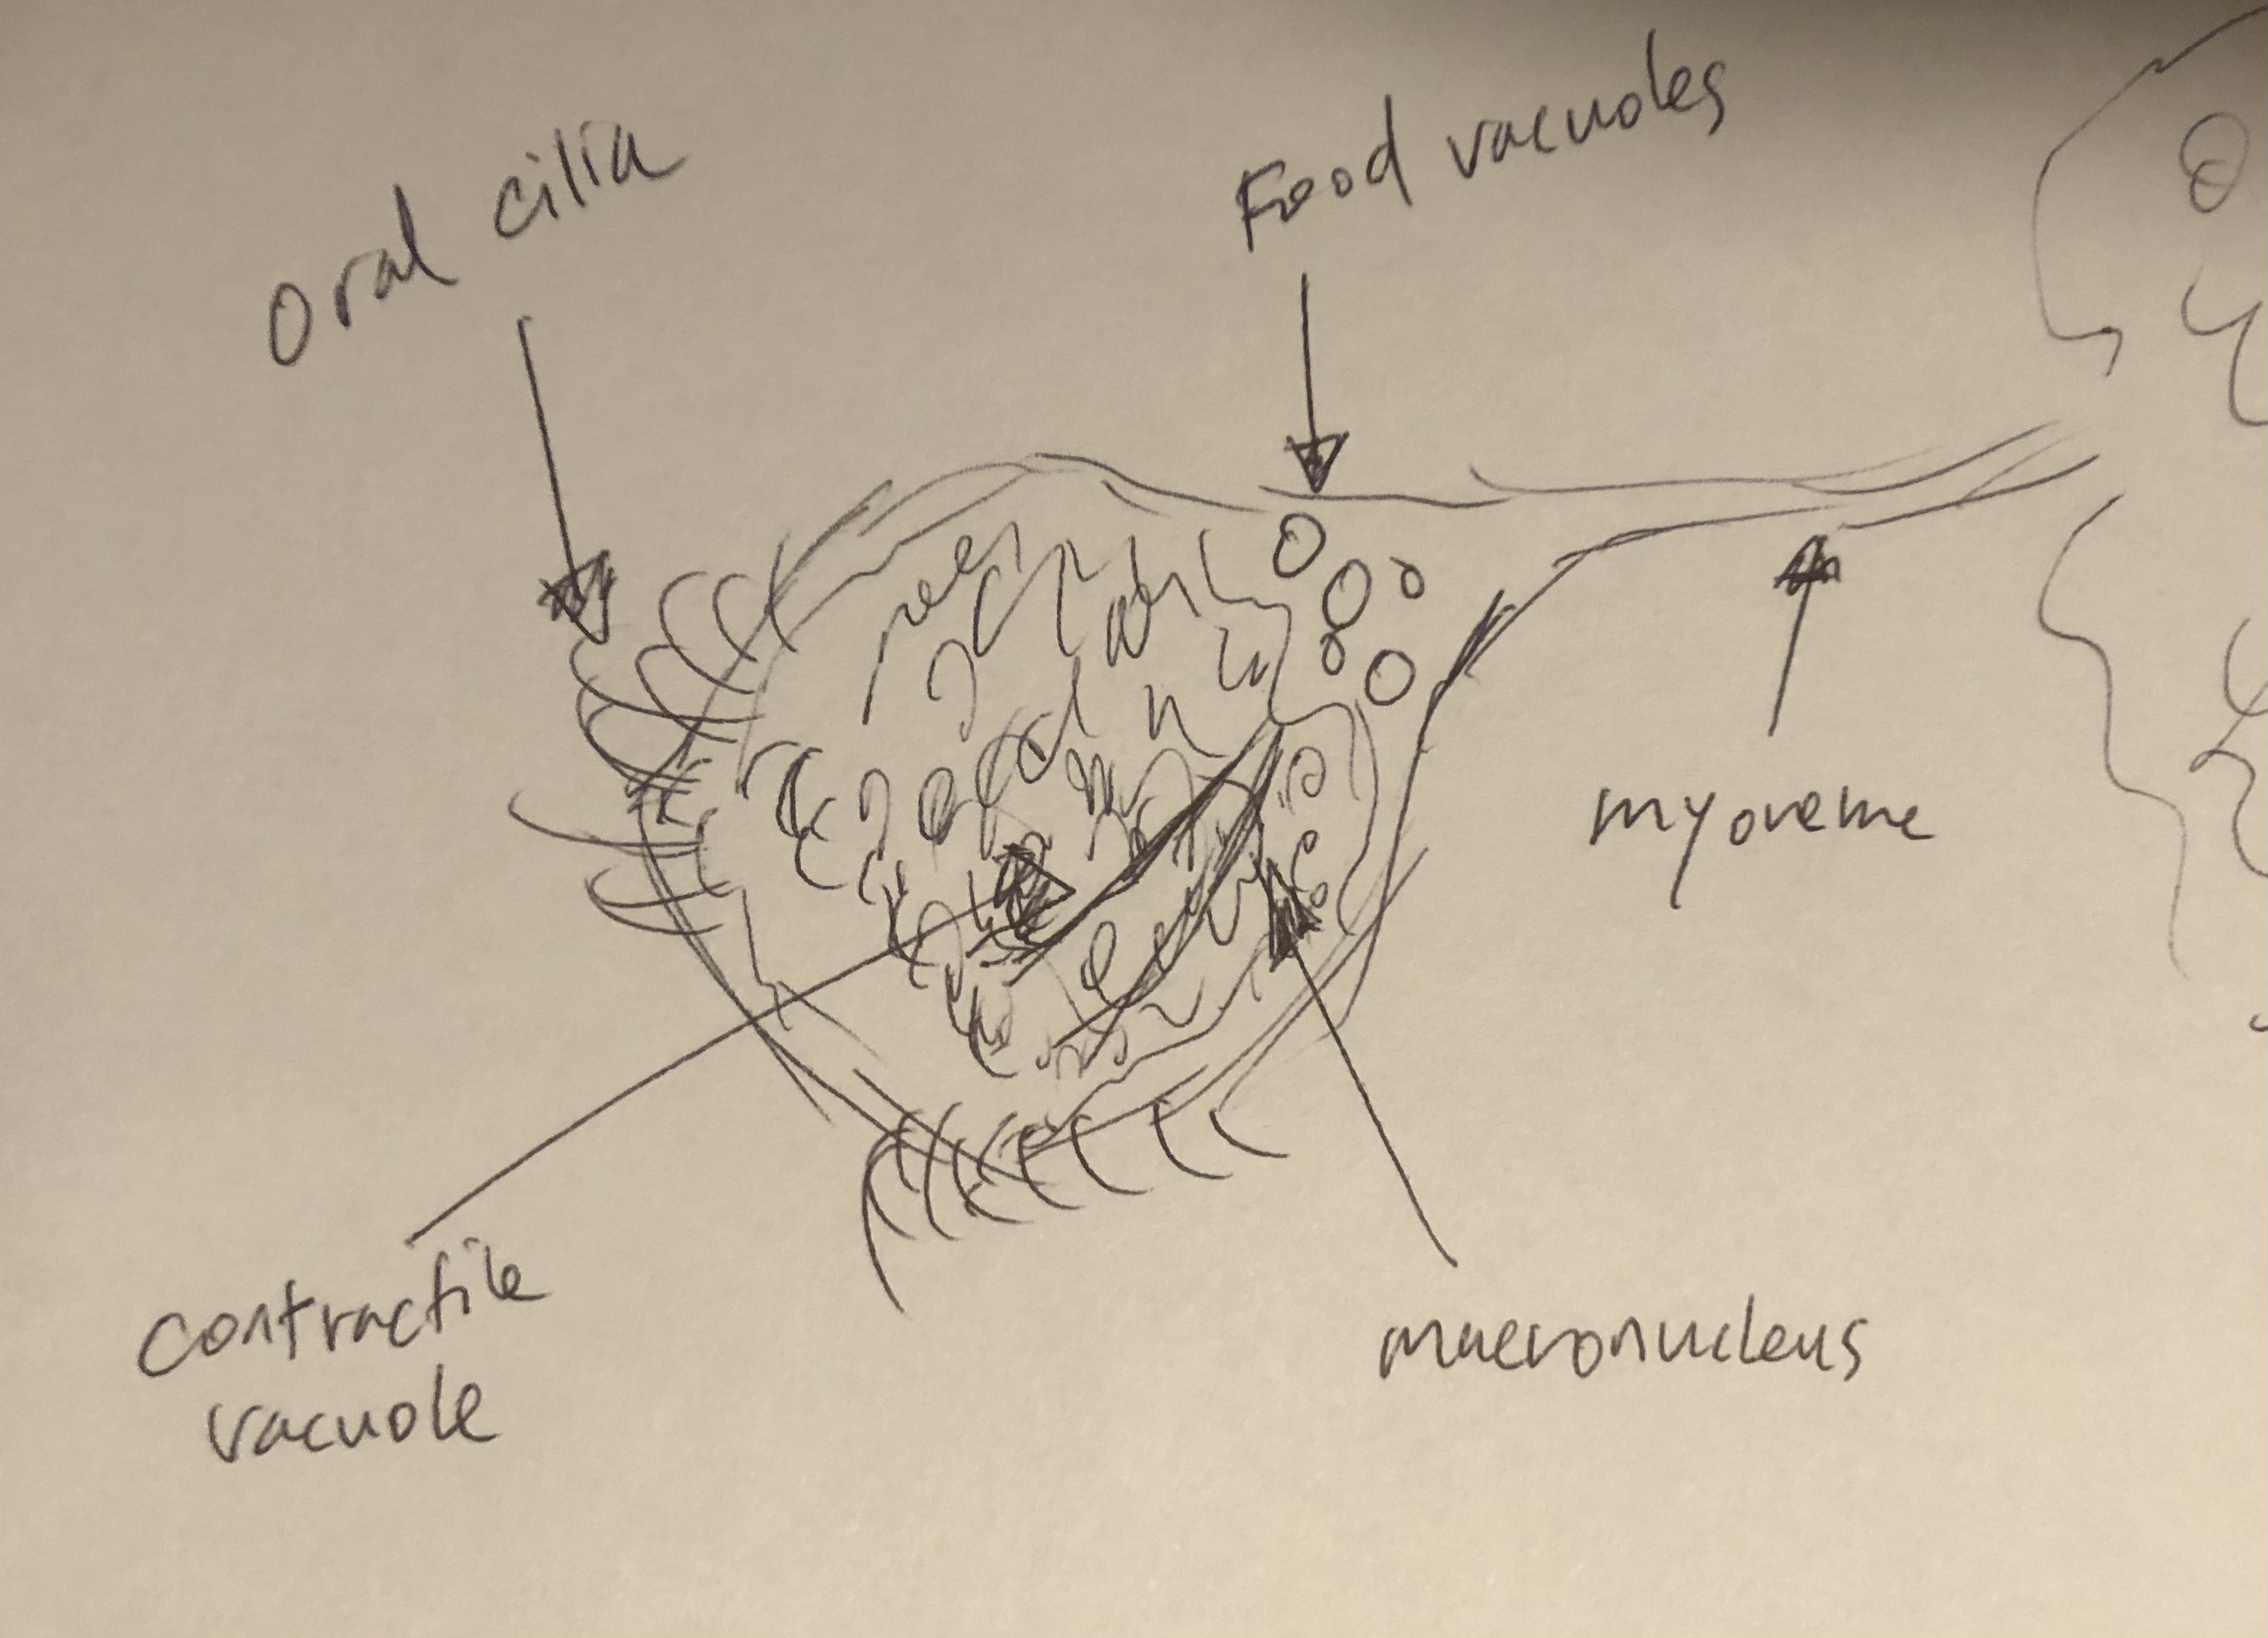 oral cilia
Food vacuoles
myoneme
contractile
vacuole
macronucleus